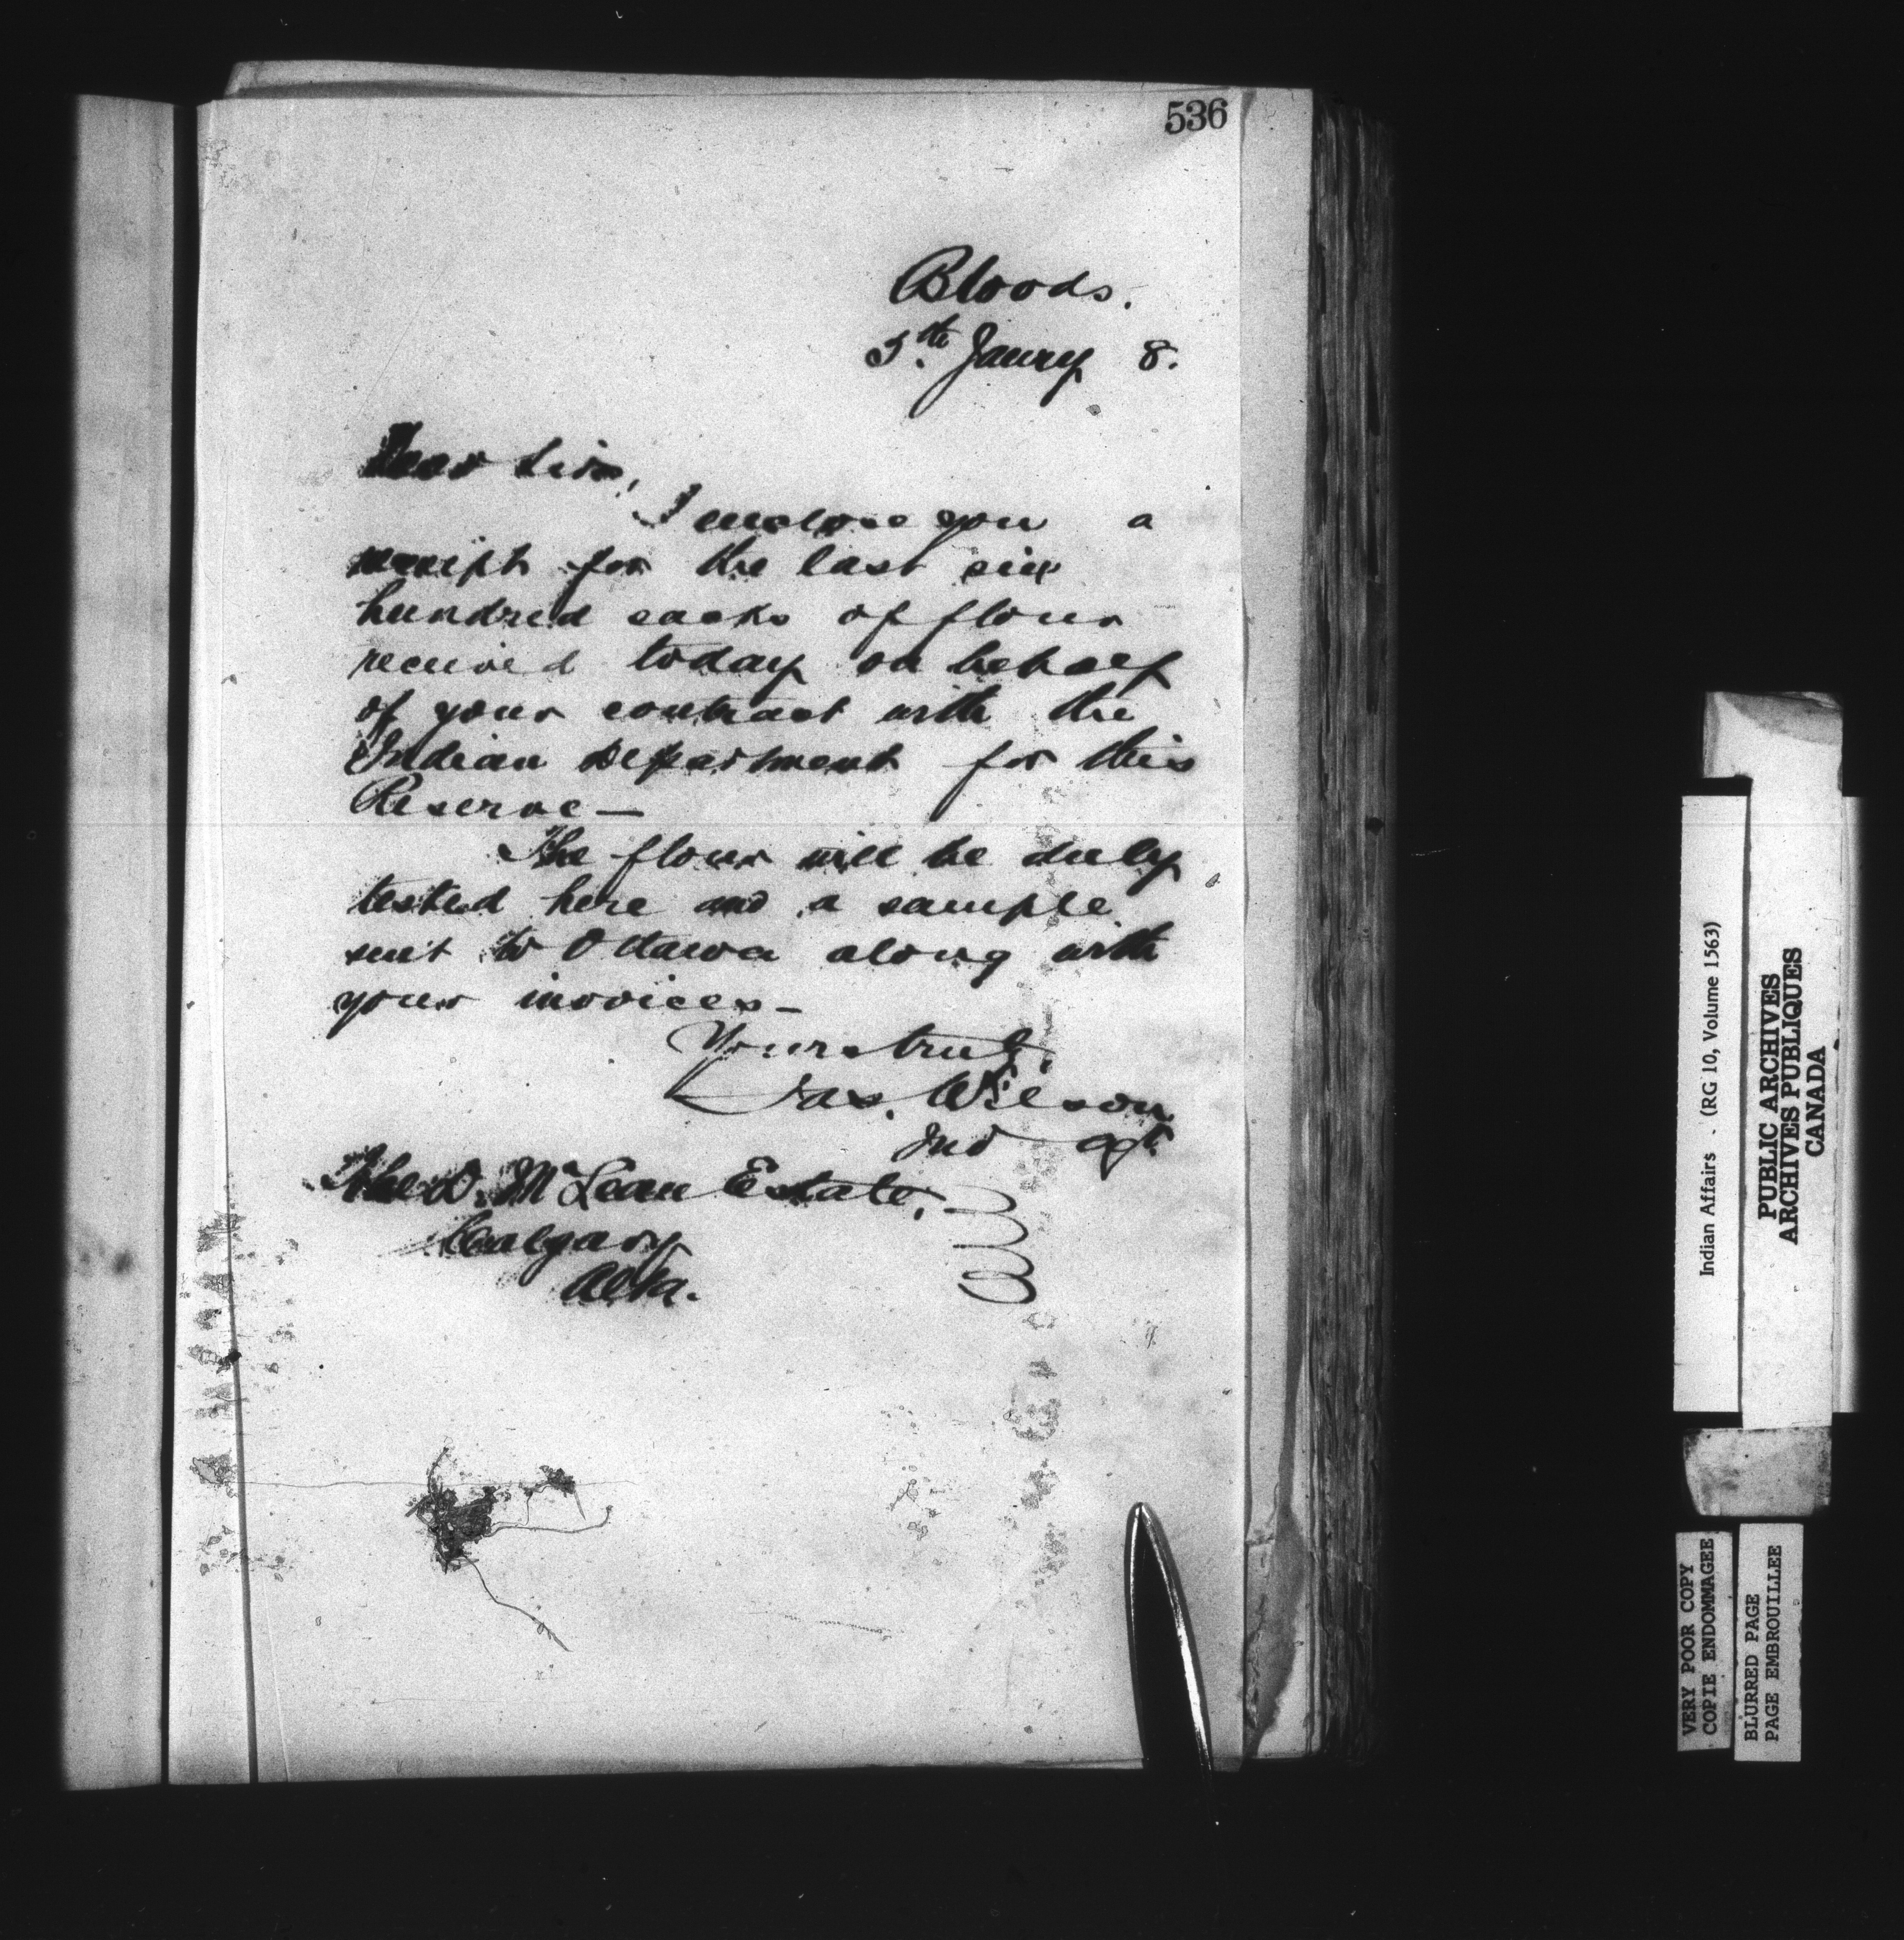 536
Bloods.
5th Janry 8.
Dear Sirs,
I enclose you a
receipt for the last six
hundred sacks of flour
received today on behalf
of your contract with the
Indian Department for this
Reserve —
The flour will be duly
tested here and a sample
sent to Ottawa along with
your invoices —
Yours truly,
Jas. Wilson
Ind Agt.
The D. McLean Estate,
Calgary
Alta.
Indian Affairs . (RG 10, Volume 1563)
PUBLIC ARCHIVES
ARCHIVES PUBLIQUES
CANADA
VERY POOR COPY
COPIE ENDOMMAGEE
BLURRED PAGE
PAGE EMBROUILLEE